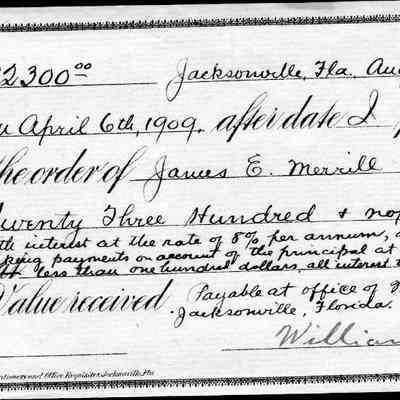 2300⁰⁰ Jacksonville, Fla. Aug
April 6th, 1909. after date I
the order of James E. Merrill
Twenty Three Hundred & no
th interest at the rate of 8% per annum,
king payments on account of the principal at
less than one hundred dollars, all interest
Value received Payable at office of
Jacksonville, Florida.
William
tionery and Office Requisites, Jacksonville, Fla